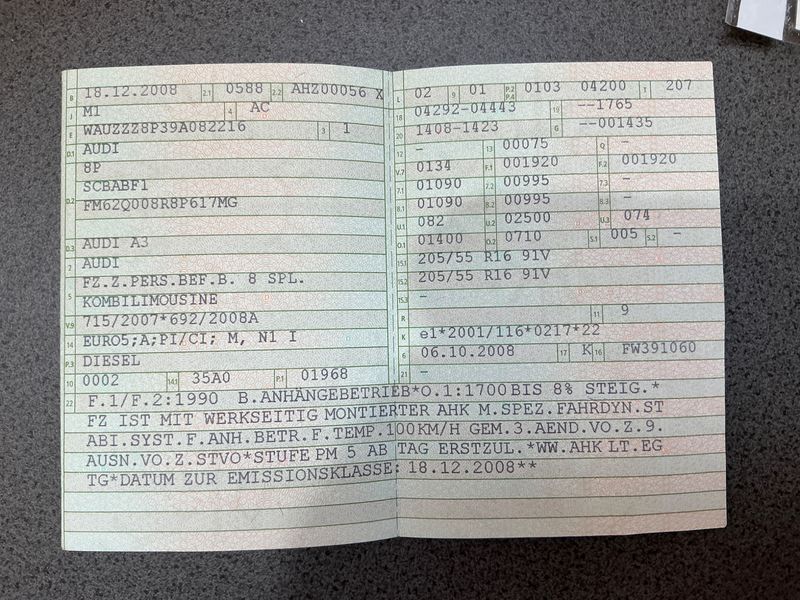 B 18.12.2008 2.1 0588 2.2 AHZ00056 X
J M1 4 AC
E WAUZZZ8P39A082216 3 1
D.1 AUDI
8P
D.2 SCBABF1
FM62Q008R8P617MG
D.3 AUDI A3
2 AUDI
5 FZ.Z.PERS.BEF.B. 8 SPL.
KOMBILIMOUSINE
V.9 715/2007*692/2008A
14 EURO5;A;PI/CI; M, N1 I
P.3 DIESEL
10 0002 14.1 35A0 P.1 01968
L 02 9 01 P.2 P.4 0103 04200 T 207
18 04292-04443 19 --1765
20 1408-1423 G --001435
12 - 13 00075 Q -
V.7 0134 F.1 001920 F.2 001920
7.1 01090 7.2 00995 7.3 -
8.1 01090 8.2 00995 8.3 -
U.1 082 U.2 02500 U.3 074
O.1 01400 O.2 0710 S.1 005 S.2 -
15.1 205/55 R16 91V
15.2 205/55 R16 91V
15.3 -
R 11 9
K e1*2001/116*0217*22
6 06.10.2008 17 K 16 FW391060
21 -
22 F.1/F.2:1990 B.ANHÄNGEBETRIEB*O.1:1700 BIS 8% STEIG.*
FZ IST MIT WERKSEITIG MONTIERTER AHK M.SPEZ.FAHRDYN.ST
ABI.SYST.F.ANH.BETR.F.TEMP.100KM/H GEM.3.AEND.VO.Z.9.
AUSN.VO.Z.STVO*STUFE PM 5 AB TAG ERSTZUL.*WW.AHK LT.EG
TG*DATUM ZUR EMISSIONSKLASSE: 18.12.2008**